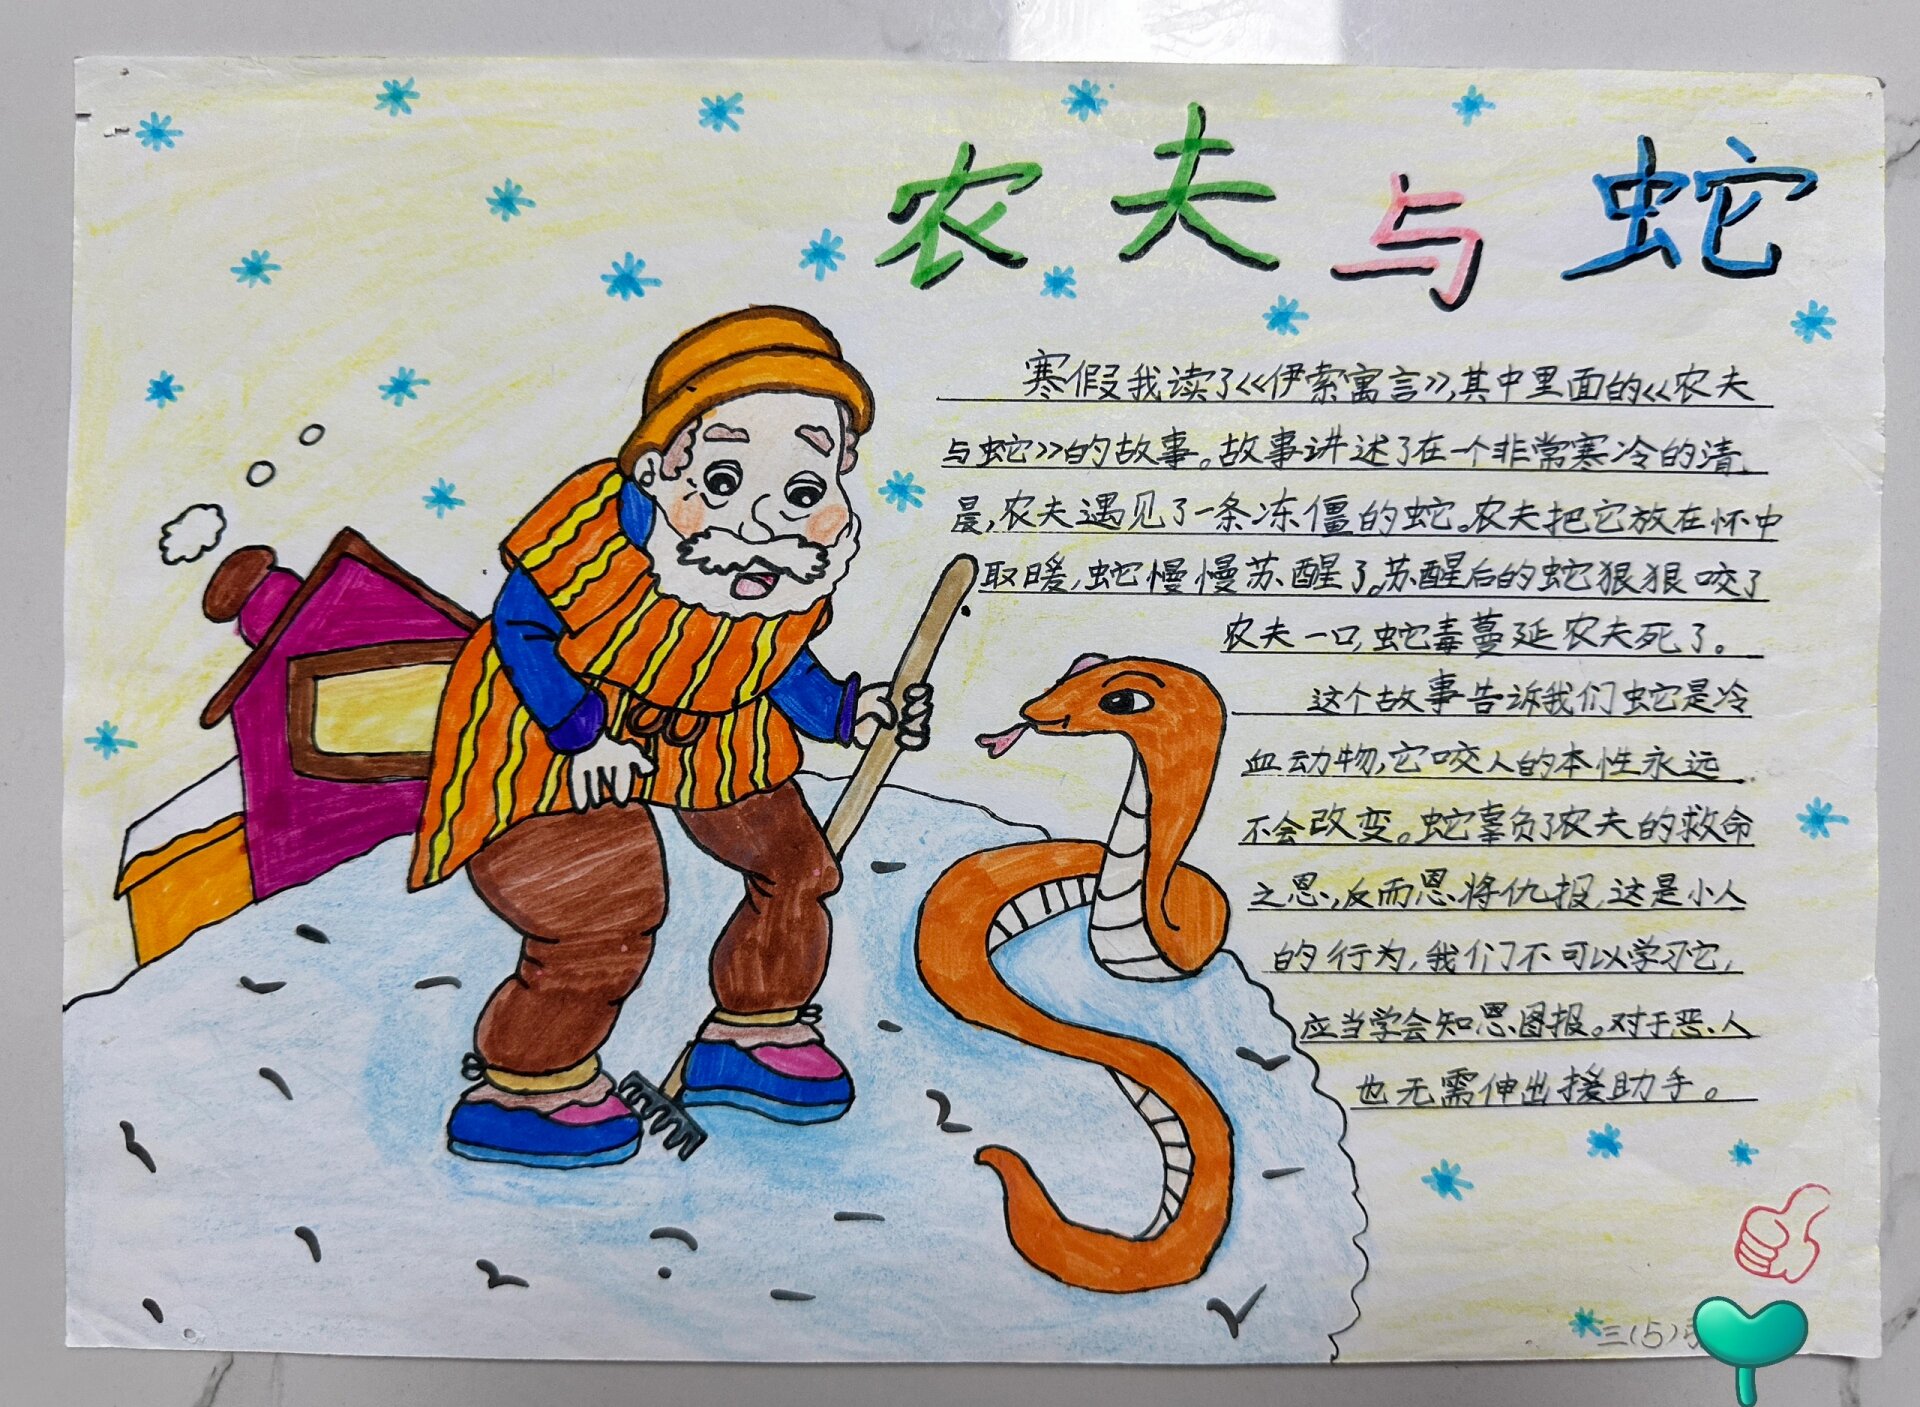 农夫与蛇
寒假我读了<<伊索寓言>>,其中里面的<<农夫
与蛇>>的故事。故事讲述了在一个非常寒冷的清
晨,农夫遇见了一条冻僵的蛇。农夫把它放在怀中
取暖,蛇慢慢苏醒了。苏醒后的蛇狠狠咬了
农夫一口,蛇毒蔓延农夫死了。
这个故事告诉我们蛇是冷
血动物,它咬人的本性永远
不会改变。蛇辜负了农夫的救命
之恩,反而恩将仇报,这是小人
的行为,我们不可以学习它,
应当学会知恩图报。对于恶人
也无需伸出援助手。
三(5)